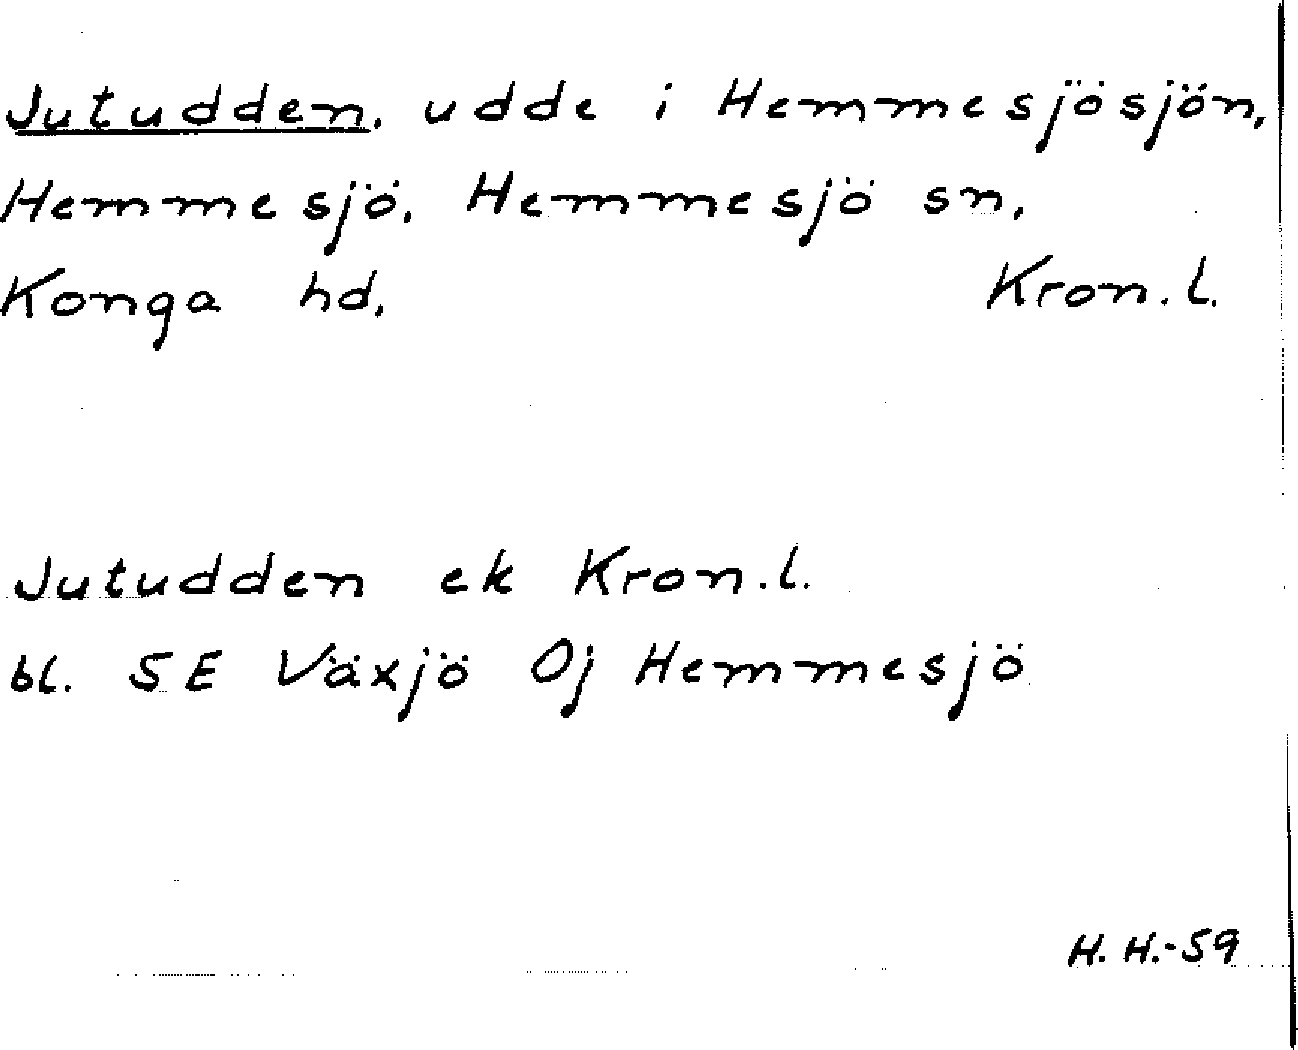 Jutudden, udde i Hemmesjösjön,
Hemmesjö, Hemmesjö sn,
Konga hd, Kron.l.
Jutudden ek Kron.l.
bl. SE Växjö Oj Hemmesjö
H. H.-59